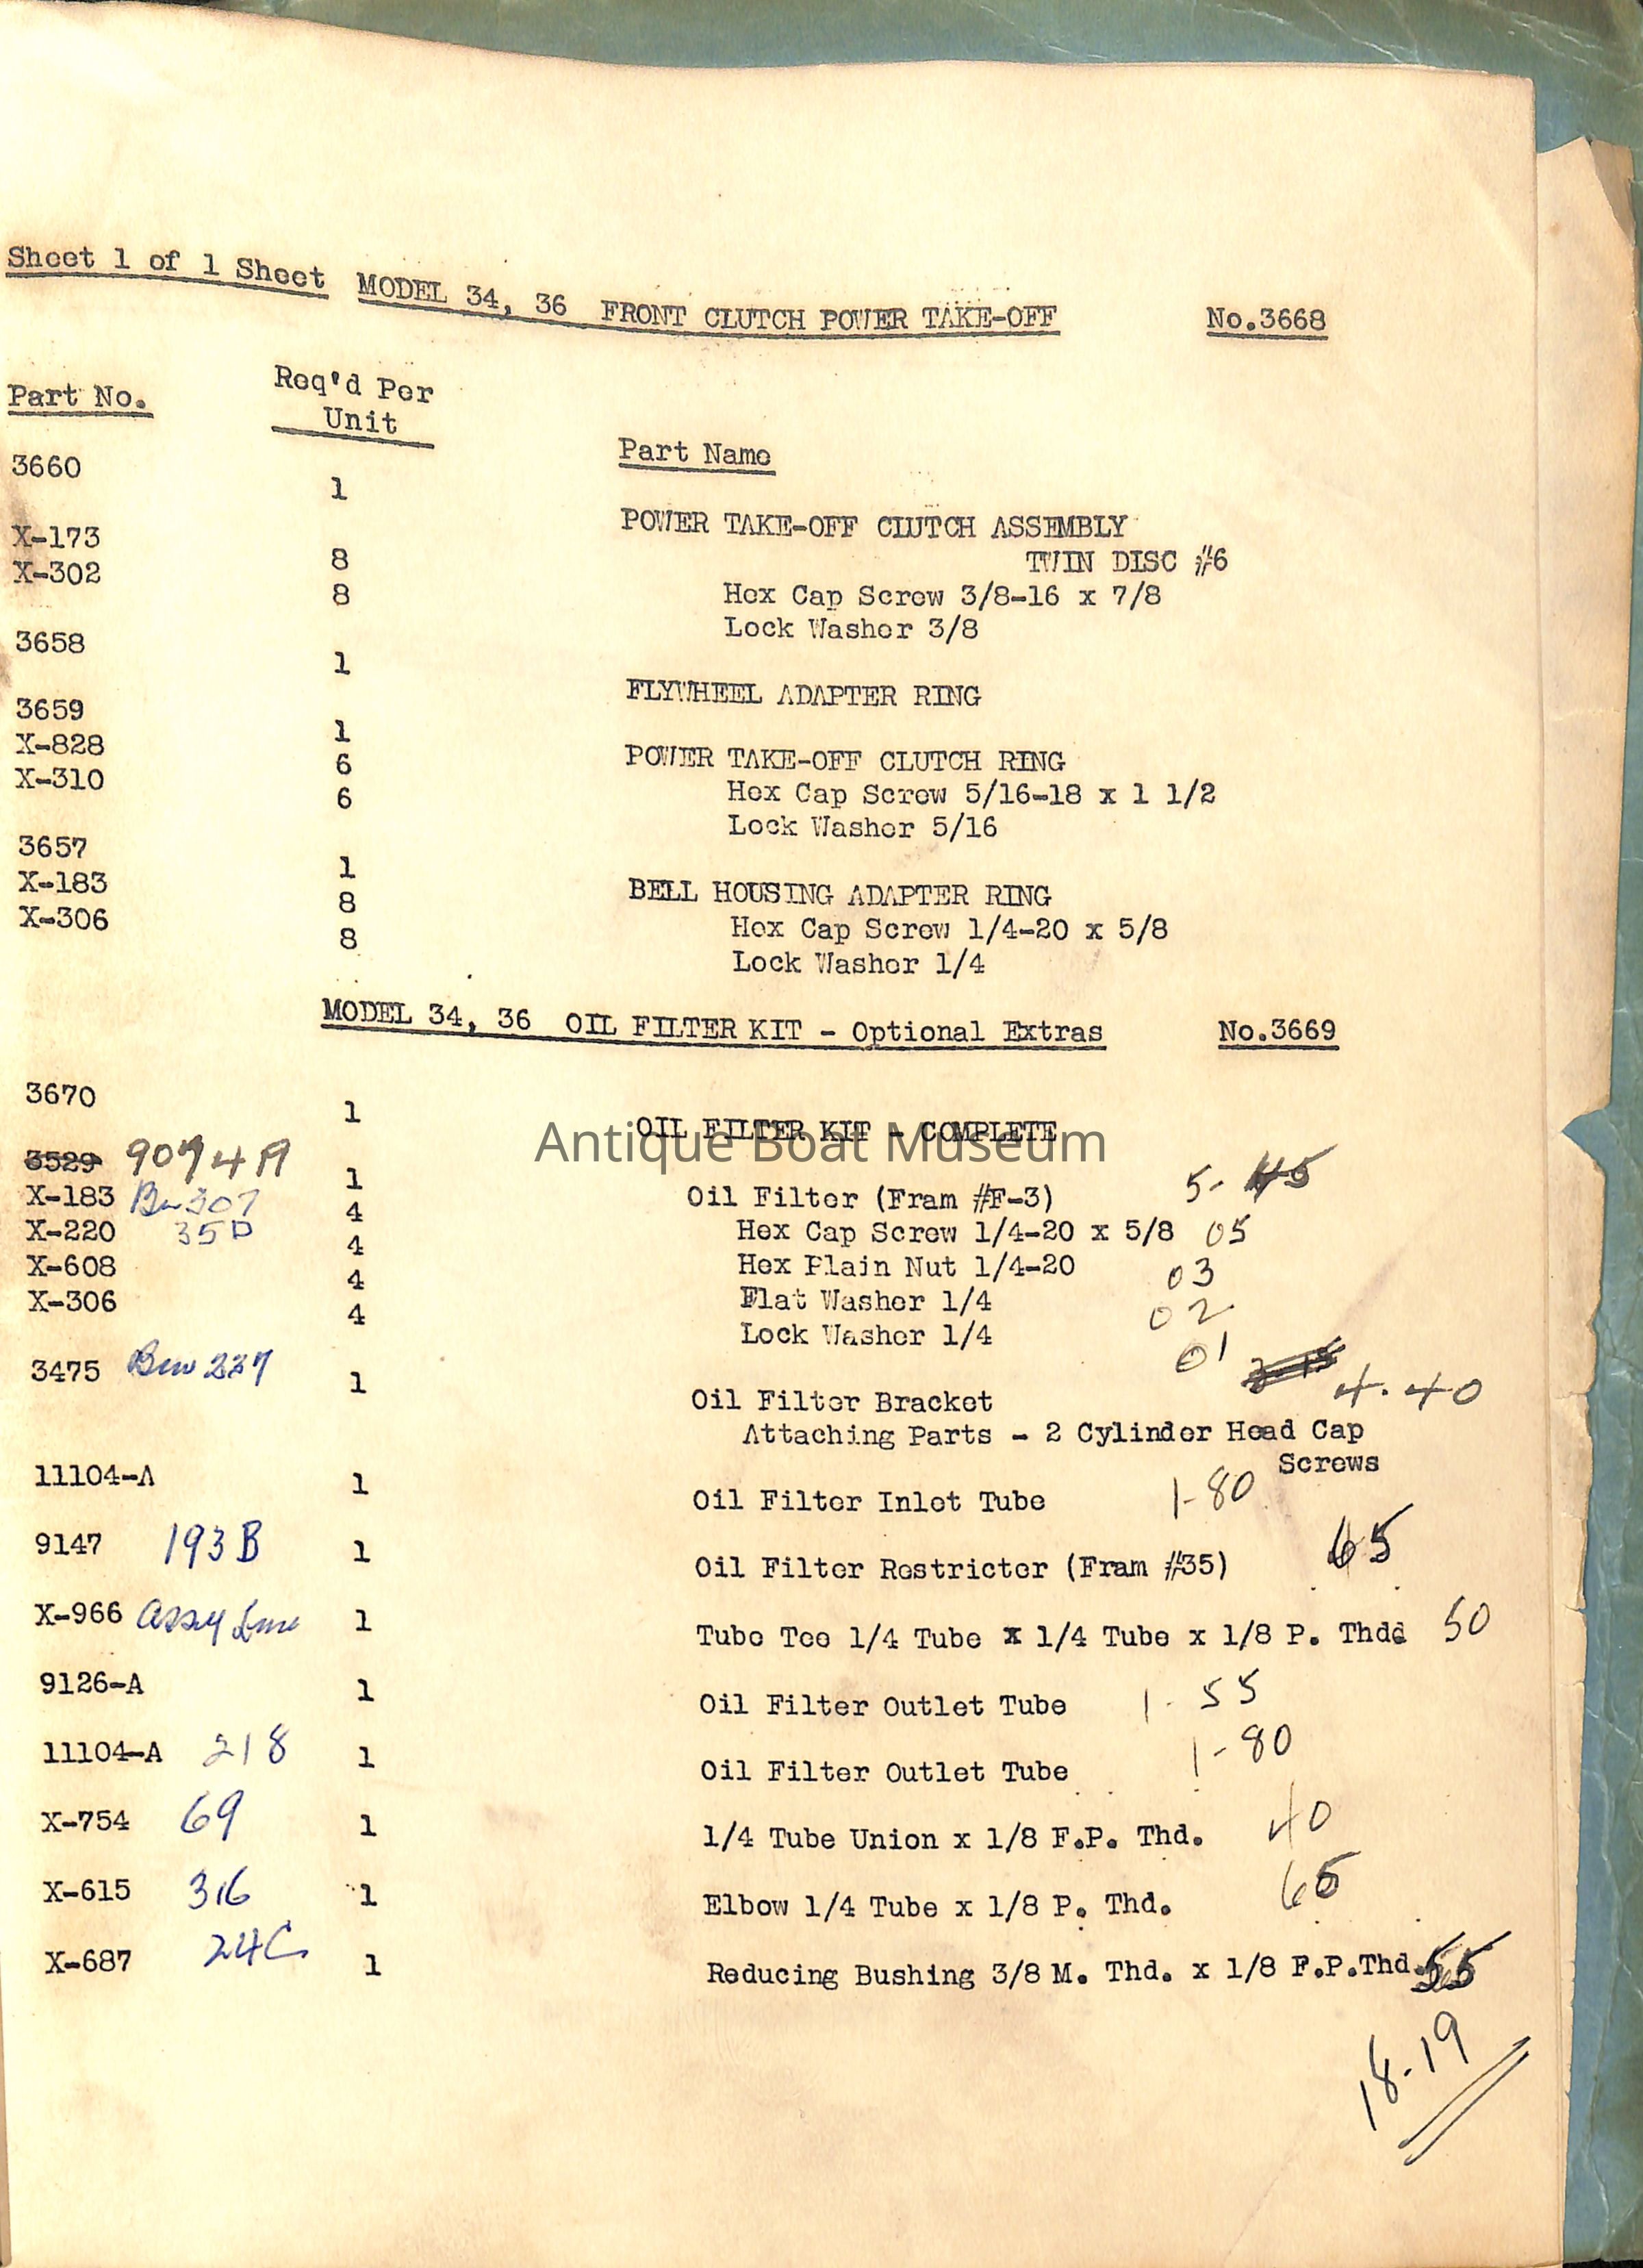 Sheet 1 of 1 Sheet MODEL 34, 36 FRONT CLUTCH POWER TAKE-OFF No.3668
Part No. Req'd Per Unit Part Name
3660 1 POWER TAKE-OFF CLUTCH ASSEMBLY
TWIN DISC #6
X-173 8 Hex Cap Screw 3/8-16 x 7/8
X-302 8 Lock Washer 3/8
3658 1 FLYWHEEL ADAPTER RING
3659 1 POWER TAKE-OFF CLUTCH RING
X-828 6 Hex Cap Screw 5/16-18 x 1 1/2
X-310 6 Lock Washer 5/16
3657 1 BELL HOUSING ADAPTER RING
X-183 8 Hex Cap Screw 1/4-20 x 5/8
X-306 8 Lock Washer 1/4
MODEL 34, 36 OIL FILTER KIT - Optional Extras No.3669
3670 1 OIL FILTER KIT - COMPLETE
Antique Boat Museum
3529 9074A 1 Oil Filter (Fram #F-3) 5-
X-183 307 4 Hex Cap Screw 1/4-20 x 5/8 05
X-220 35D 4 Hex Plain Nut 1/4-20 03
X-608 4 Flat Washer 1/4 02
X-306 4 Lock Washer 1/4 01
3475 227 1 Oil Filter Bracket 4.40
Attaching Parts - 2 Cylinder Head Cap
Screws
11104-A 1 Oil Filter Inlet Tube 1-80
9147 193B 1 Oil Filter Restricter (Fram #35) 65
X-966 assy 1 Tube Tee 1/4 Tube x 1/4 Tube x 1/8 P. Thdd 50
9126-A 1 Oil Filter Outlet Tube 1-55
11104-A 218 1 Oil Filter Outlet Tube 1-80
X-754 69 1 1/4 Tube Union x 1/8 F.P. Thd. 40
X-615 316 1 Elbow 1/4 Tube x 1/8 P. Thd. 65
X-687 24C 1 Reducing Bushing 3/8 M. Thd. x 1/8 F.P.Thd. 55
18-19